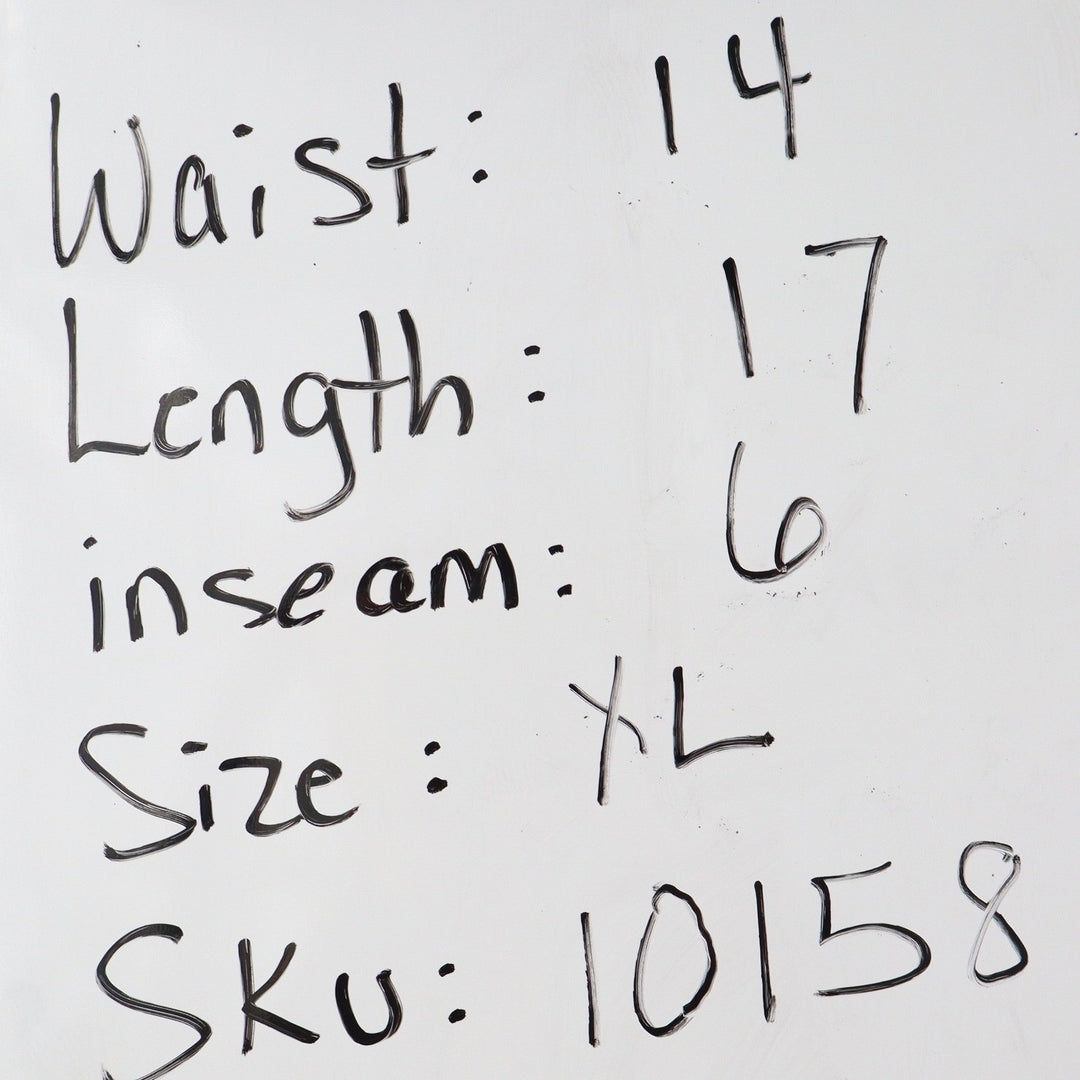 Waist: 14
Length: 17
inseam: 6
Size: XL
SKU: 10158